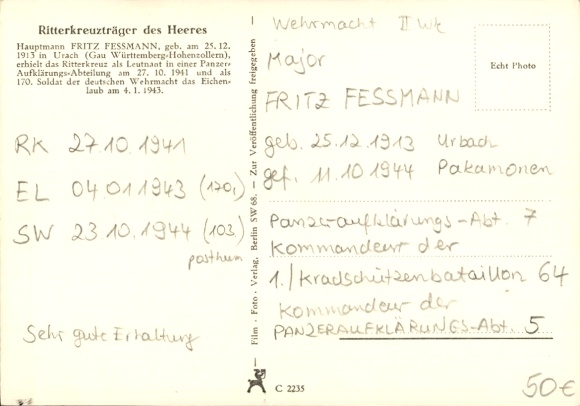 Ritterkreuzträger des Heeres
Hauptmann FRITZ FESSMANN, geb. am 25. 12.
1913 in Urach (Gau Württemberg-Hohenzollern),
erhielt das Ritterkreuz als Leutnant in einer Panzer-
Aufklärungs-Abteilung am 27. 10. 1941 und als
170. Soldat der deutschen Wehrmacht das Eichen-
laub am 4. 1. 1943.
RK 27.10.1941
EL 04.01.1943 (170.)
SW 23.10.1944 (103.)
posthum
Sehr gute Erhaltung
Film - Foto - Verlag, Berlin SW 68. — Zur Veröffentlichung freigegeben —
Wehrmacht II Wk
Major
FRITZ FESSMANN
geb. 25.12.1913 Urbach
gef. 11.10.1944 Pakamonen
Panzeraufklärungs-Abt. 7
Kommandeur der
1./Kradschützenbataillon 64
Kommandeur der
PANZERAUFKLÄRUNGS-Abt. 5
Echt Photo
C 2235
50€